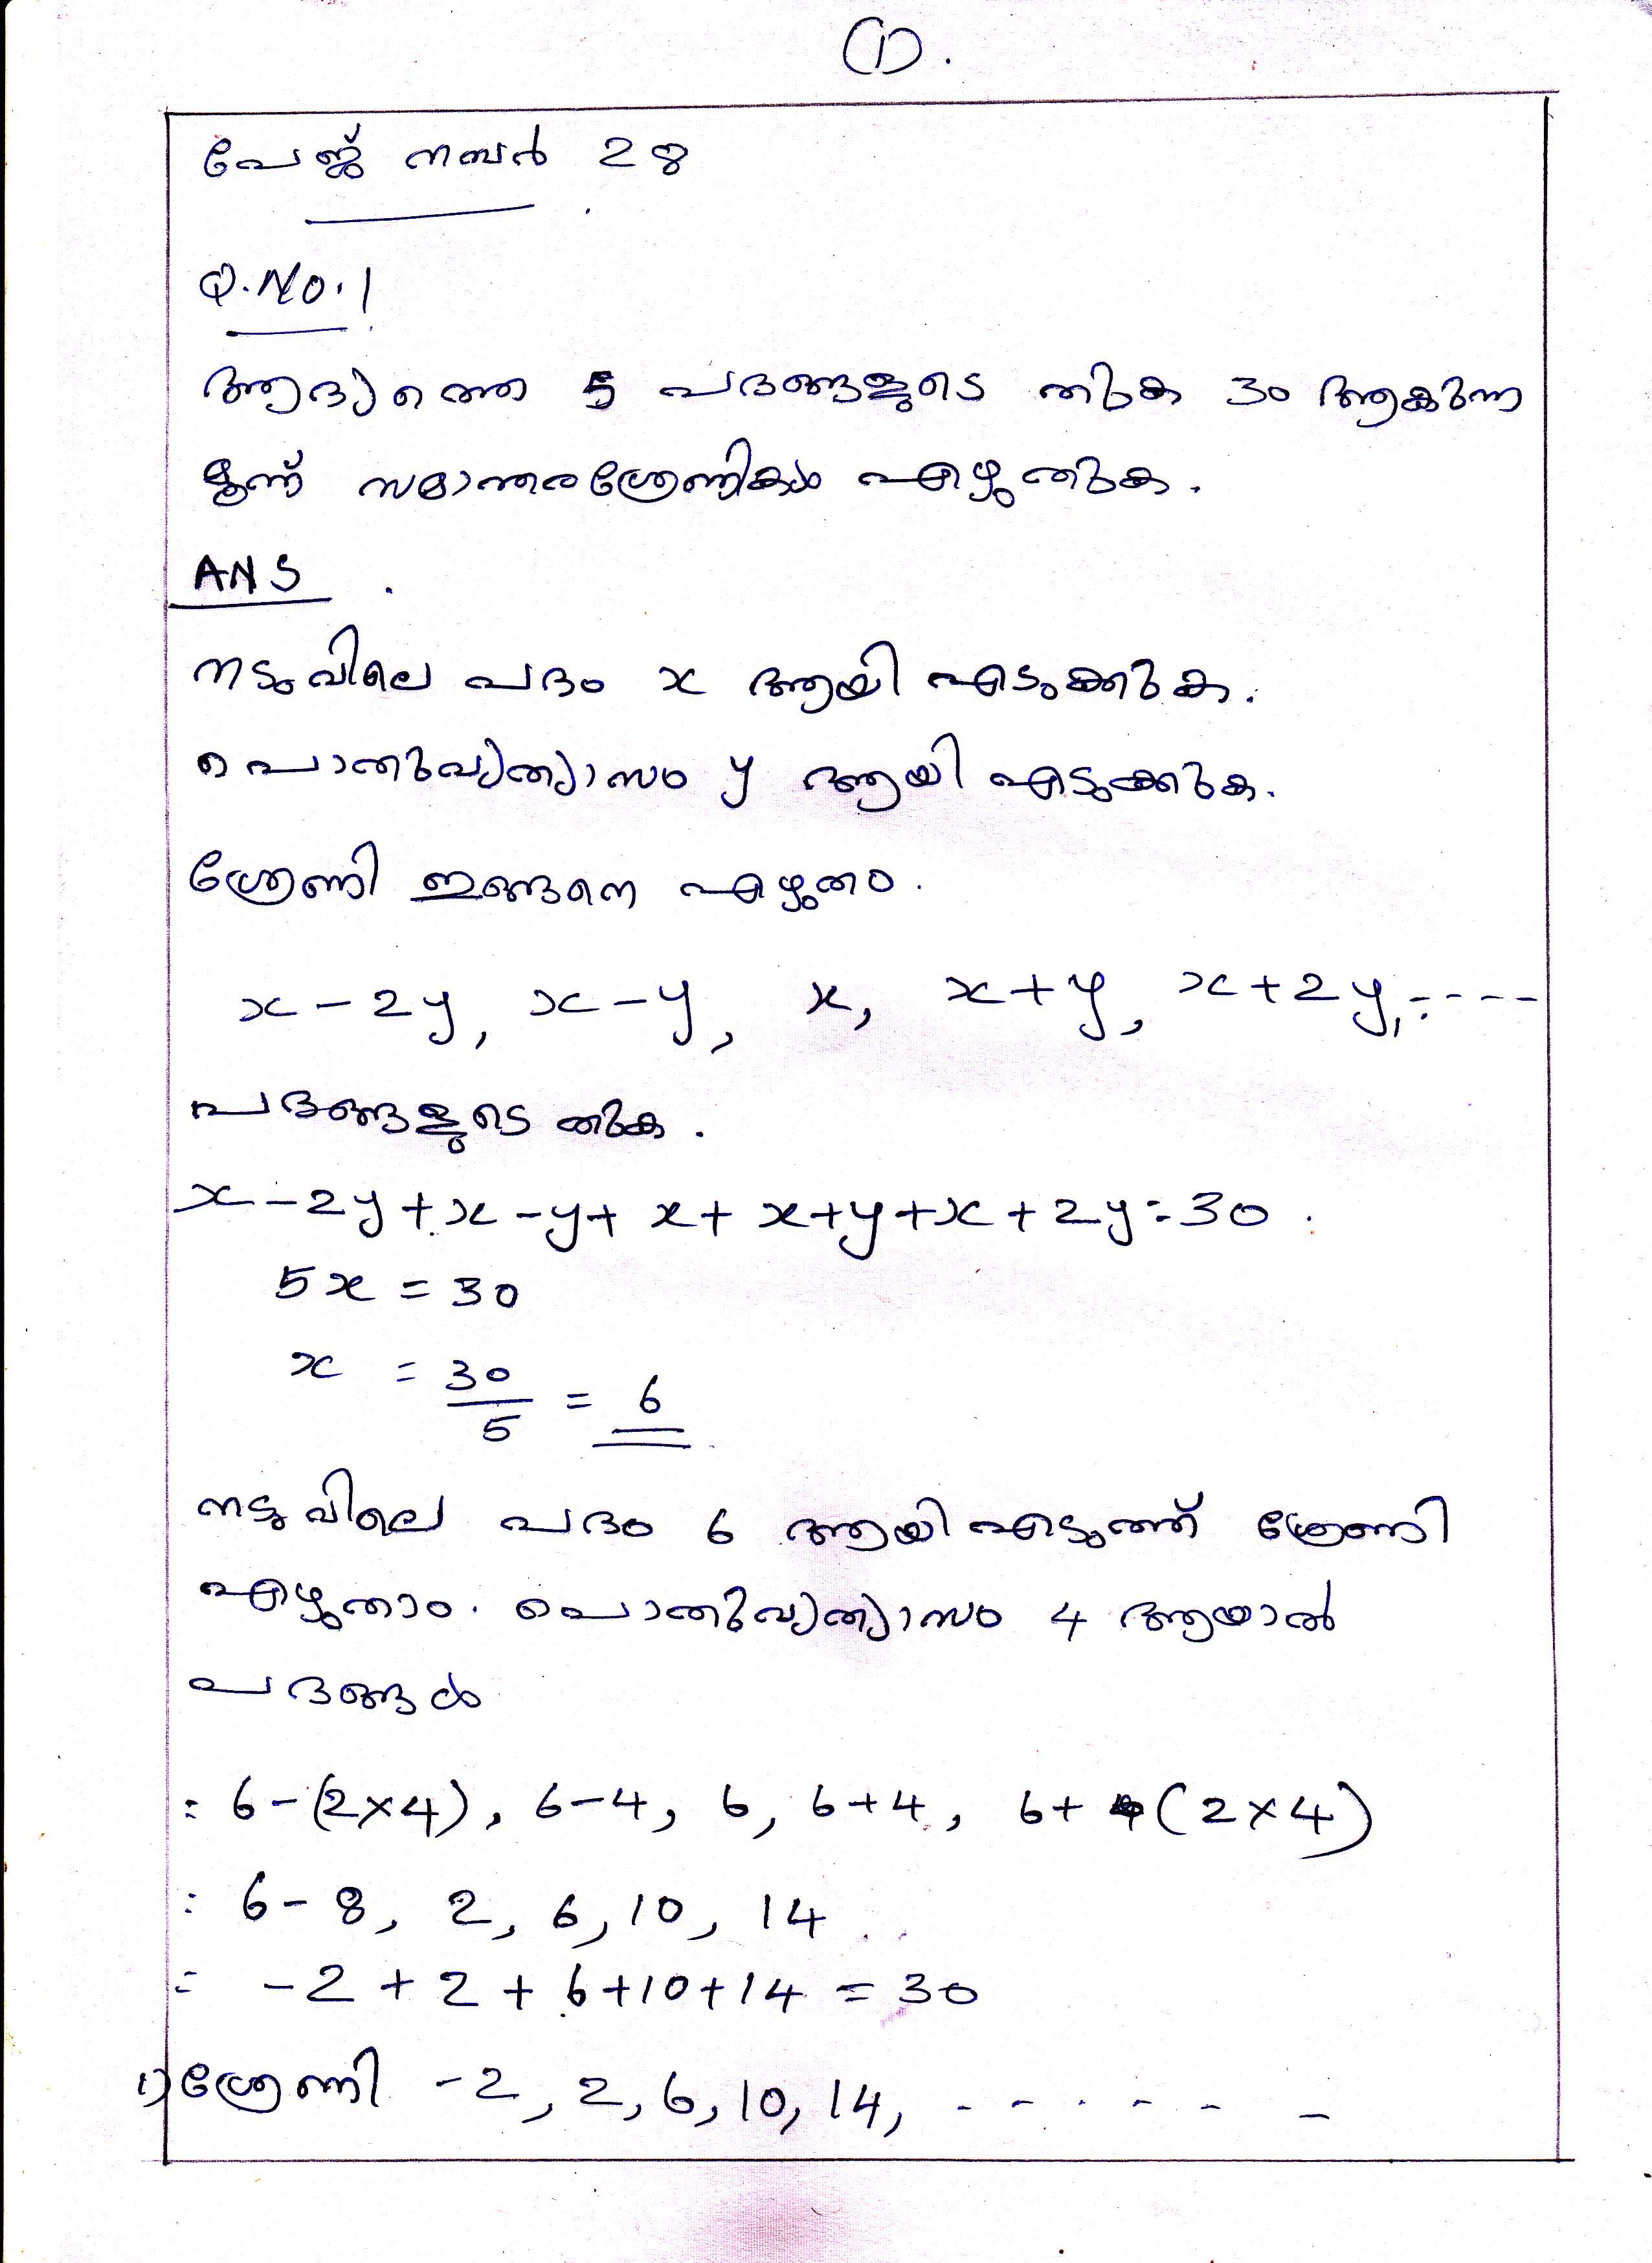 (1).
പേജ് നമ്പർ 28
Q.No.1
ആദ്യത്തെ 5 പദങ്ങളുടെ തുക 30 ആകുന്ന
മൂന്ന് സമാന്തരശ്രേണികൾ എഴുതുക.
ANS
നടുവിലെ പദം x ആയി എടുക്കുക.
പൊതുവ്യത്യാസം y ആയി എടുക്കുക.
ശ്രേണി ഇങ്ങനെ എഴുതാം.
x - 2y, x - y, x, x + y, x + 2y, ----
പദങ്ങളുടെ തുക.
x - 2y + x - y + x + x + y + x + 2y = 30.
5x = 30
x = 30/5 = 6
നടുവിലെ പദം 6 ആയി എടുത്ത് ശ്രേണി
എഴുതാം. പൊതുവ്യത്യാസം 4 ആയാൽ
പദങ്ങൾ
= 6 - (2×4), 6 - 4, 6, 6 + 4, 6 + (2×4)
= 6 - 8, 2, 6, 10, 14
= -2 + 2 + 6 + 10 + 14 = 30
1) ശ്രേണി -2, 2, 6, 10, 14, - - - - - - -